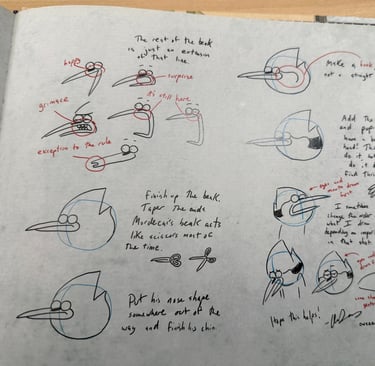 The rest of the beak
is just an extension
of that line.
happy
surprise
grimace
it's still here
exception to the rule
Finish up the beak.
Taper the ends
Mordecai's beak acts
like scissors most of
the time.
Put his nose shape
somewhere out of the
way and finish his chin.
Make a
not a straight
Add the
and pup
have a
head! Th
do it
do it
find this
eyes and
mouth drawn
I sometimes
change the order
what I draw
depending on
in that shot.
Hope this helps!